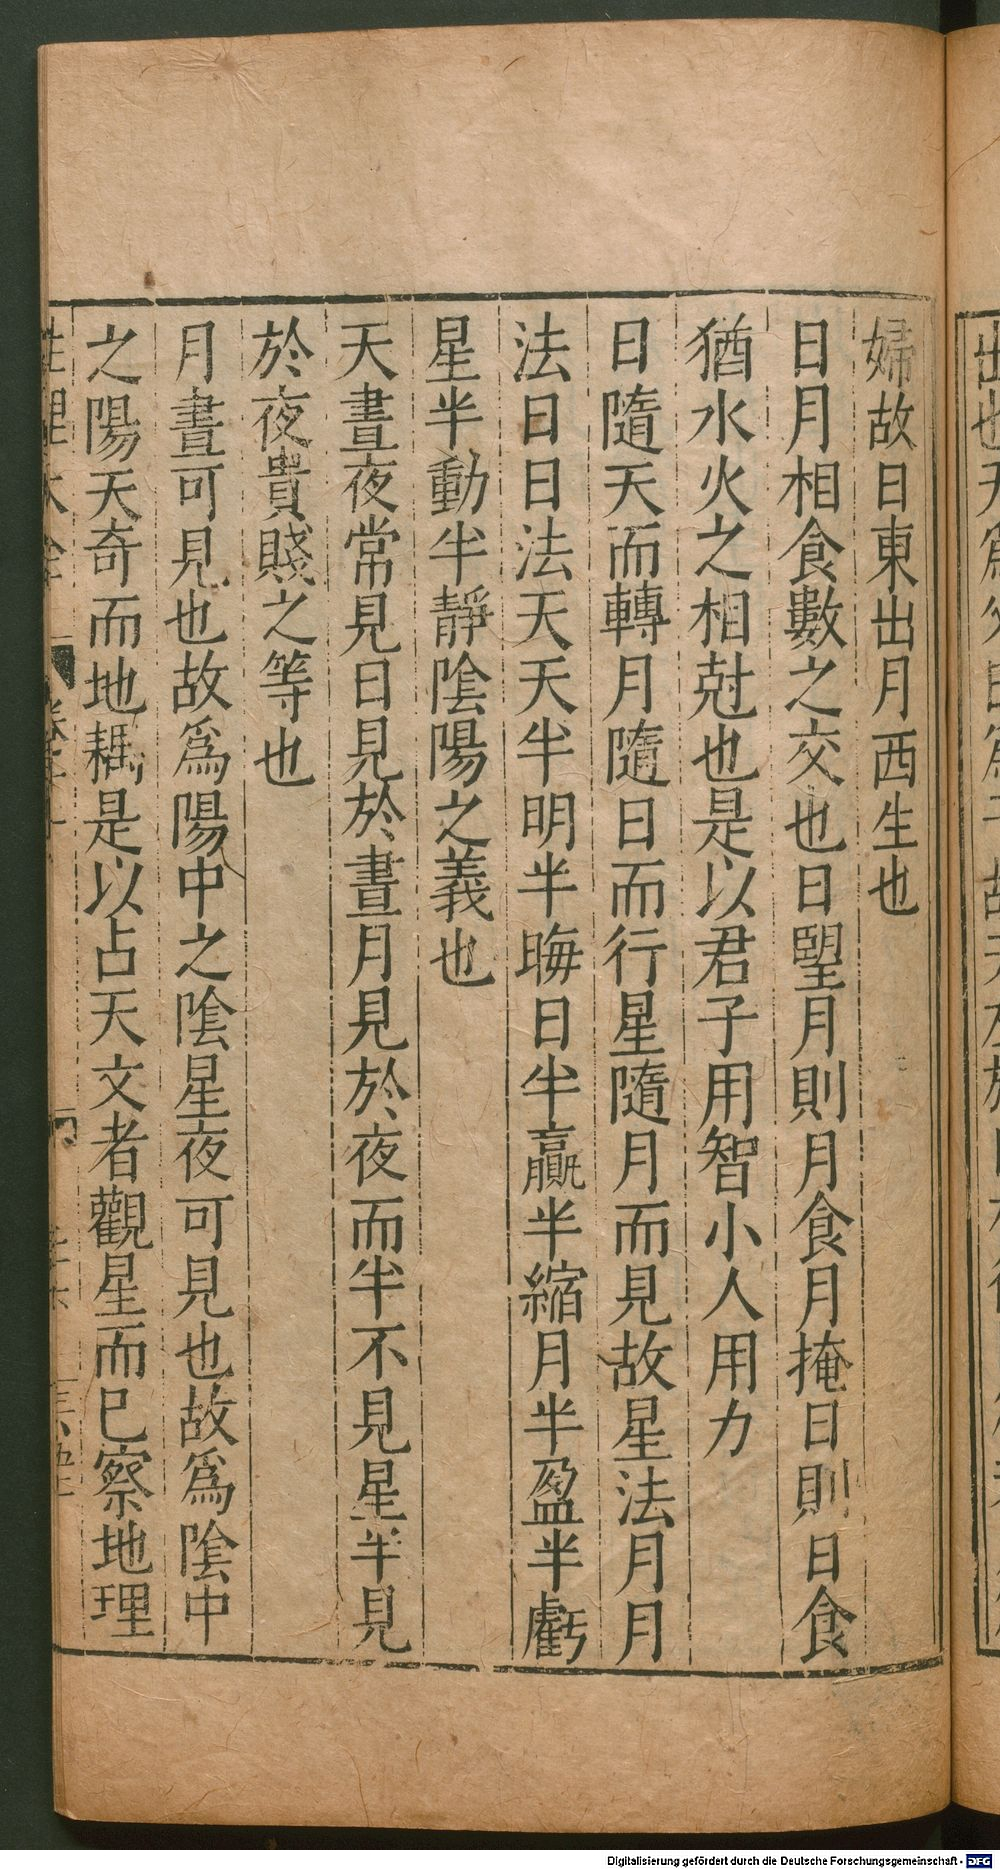 婦故日東出月西生也
日月相食數之交也日朢月則月食月掩日則日食
猶水火之相尅也是以君子用智小人用力
日隨天而轉月隨日而行星隨月而見故星法月月
法日日法天天半明半晦日半贏半縮月半盈半虧
星半動半靜陰陽之義也
天晝夜常見日見於晝月見於夜而半不見星半見
於夜貴賤之等也
月晝可見也故爲陽中之陰星夜可見也故爲陰中
之陽天奇而地耦是以占天文者觀星而已察地理
Digitalisierung gefördert durch die Deutsche Forschungsgemeinschaft - DFG